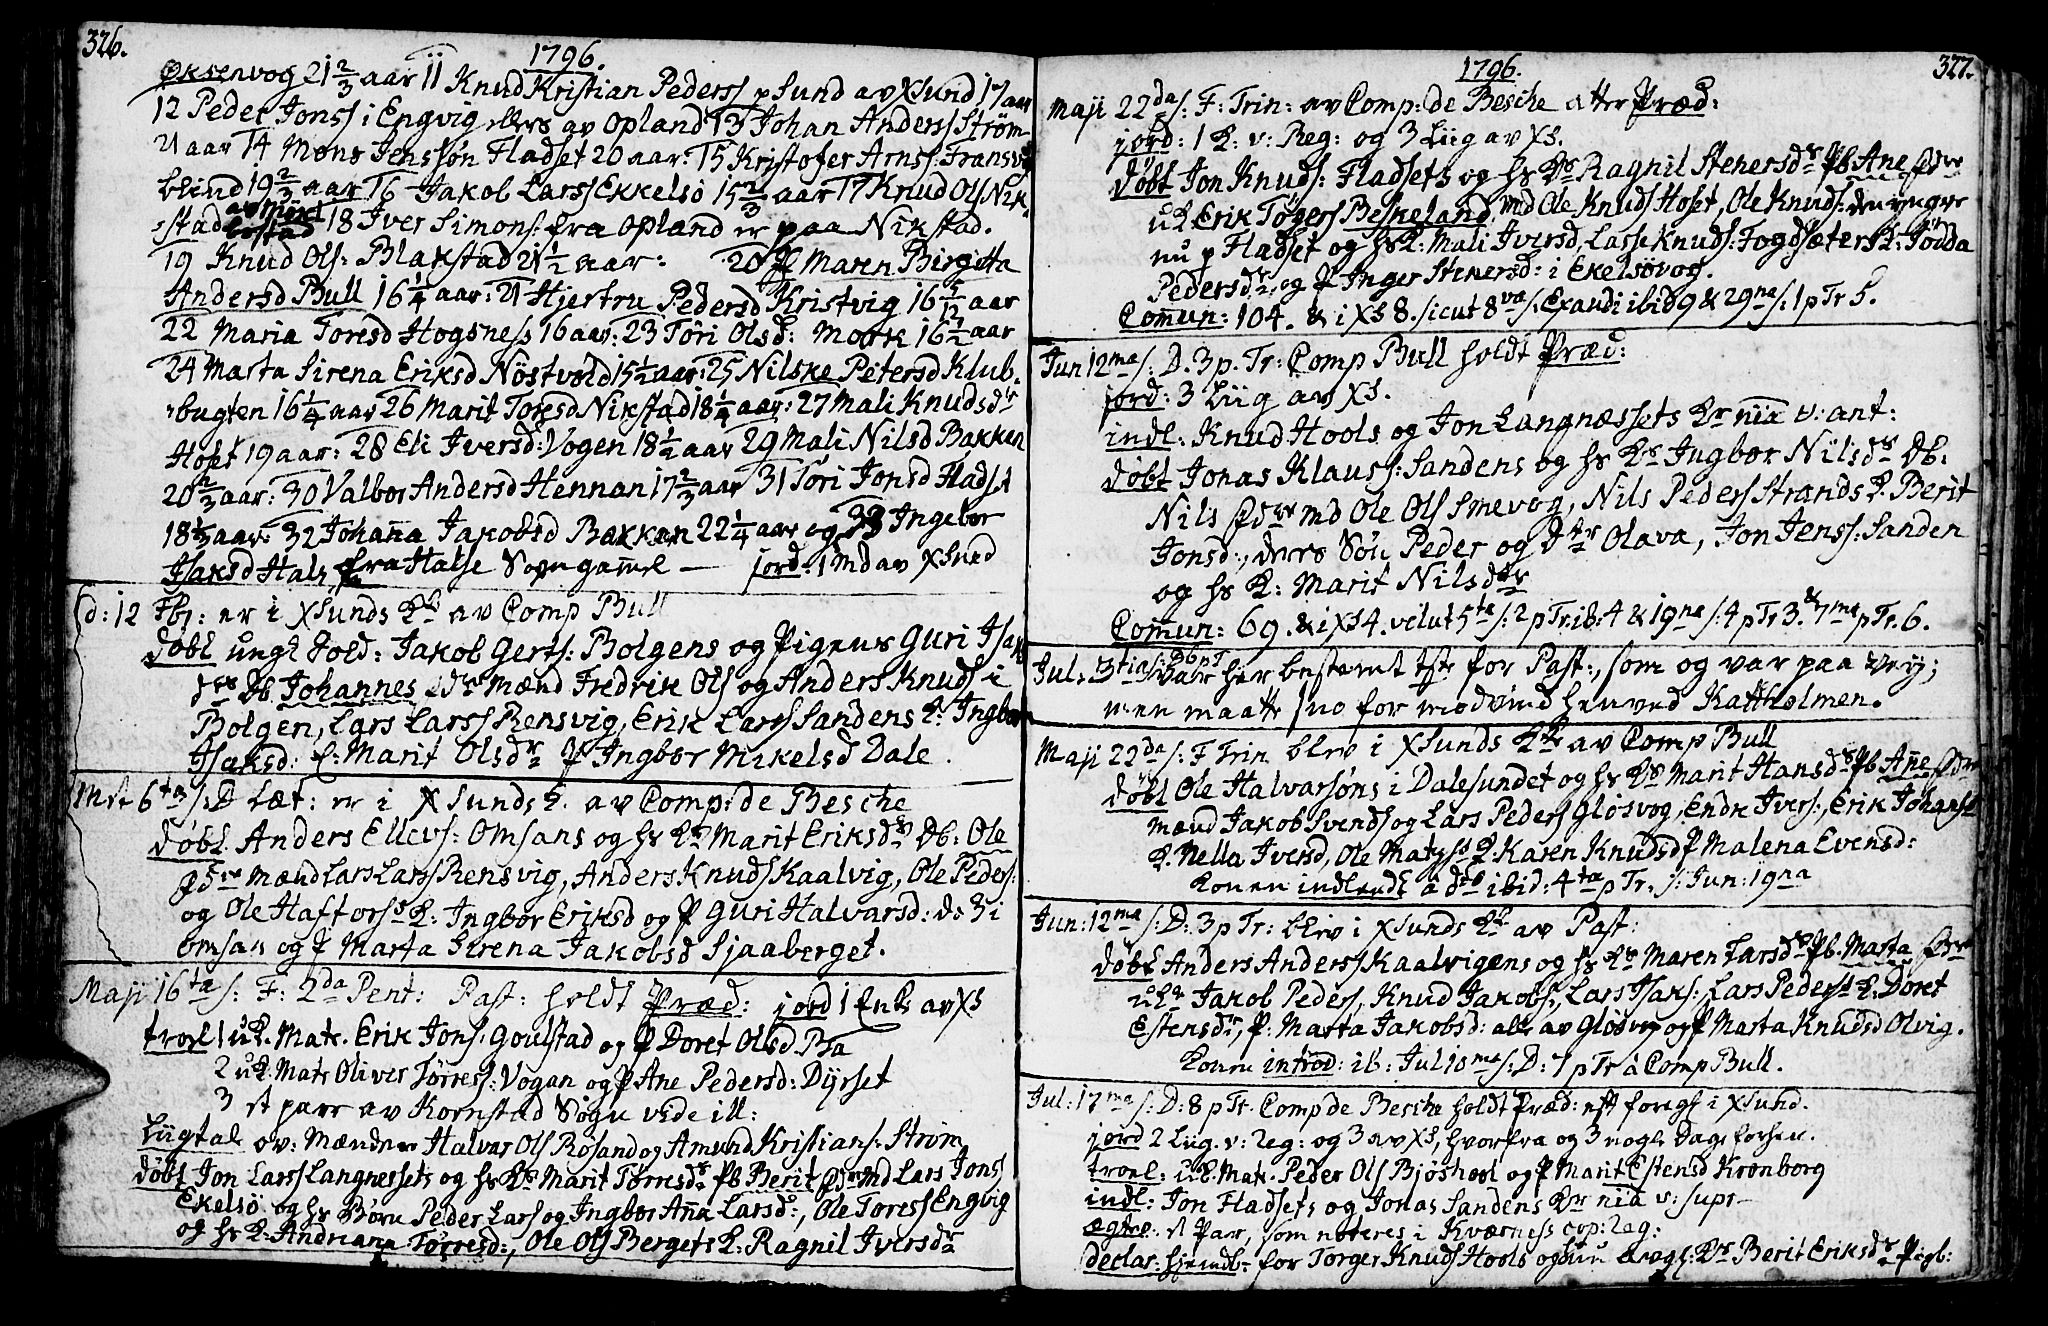 326.
1796.
Øksenvog 21 2/3 aar 11 Knud Kristian Pederss p Sund av XSund 17 aar
12 Peder Jonss i Engvig ellers av Opland 13 Johan Anderss Strøm
21 aar 14 Mons Jenssøn Fladset 20 aar: 15 Kristofer Arnss: Fransv
blind 19 2/3 aar 16 Jakob Larss Ekkelsö 15 2/3 aar 17 Knud Ols Nik-
stad 18 Iver Simons: fra Opland er paa Nikstad.
19 Knud Ols: Blakstad 21 1/2 aar: 20 P Maren Birgitta
Andersd Bull 16 1/4 aar: 21 Hjertru Pedersd Kristvig 16 5/12 aar
22 Maria Toresd Hogsness 16 aar: 23 Töri Olsd: Mork 16 1/2 aar
24 Marta Sirena Eriksd Nöstvold 15 1/2 aar: 25 Nilske Petersd Klub-
bugten 16 1/4 aar 26 Marit Toresd Nikstad 18 1/4 aar: 27 Mali Knudsdr
Hoset 19 aar: 28 Eli Iversd: Vogen 18 1/2 aar 29 Mali Nilsd Bakken
20 2/3 aar: 30 Valbor Andersd Hennan 17 2/3 aar 31 Töri Jonsd Fladset
18 1/3 aar: 32 Johanna Jakobsd Bakken 22 1/4 aar og 33 Ingebor
Isaksd Hals fra Halse Sogn gamel — jord: 1 Md av XSund
d: 12 Fbr: er i XSunds Kk av Comp Bull
Döbt ungt Fold: Jakob Gerts: Bolgens og Pigens Guri Isaks
drs Db Johannes Mænd Fredrik Ols og Anders Knuds i
Bolgen, Lars Larss Rensvig, Erik Larss Sandens K: Ingbor
Isaksd: K: Marit Olsdr P Ingbor Mikelsd Dale.
Mrt 6ta s: D Læt: er i XSunds K. av Comp: de Besche
Döbt. Anders Ellevs: Omsans og hs Ks Marit Eriksdrs Db: Ole
Mænd Lars Larss Rensvig, Anders Knuds Kaalvig, Ole Peders:
og Ole Haftorss K: Ingbor Eriksd og P Guri Halvarsd: de 3 i
Omsan og P Marta Serena Jakobsd Sjaaberget.
Maji 16ta s: F: 2da Pent: Past: holdt Præd: jord 1 Enk av XS
trol 1 uK. Matr. Erik Jons: Goulstad og P Doret Olsd Ba
2 uK. Matr Oliver Törress: Vogan og P Ane Pedersd: Dyrset
3 et parr av Kornstad Sogn vide ill:
Liigtale ov: Mændene Halvar Ols Rösand og Amund Kristians: Strøm
Döbt Jon Larss Langnessets og hs Ks Marit Törresdrs Pb Berit Md Lars Jons
Ekelsö og hs Börn Peder Larss og Ingbor Anna Larsd:, Ole Toress Engvig
og hs K: Andriana Törresd:, Ole Ols Bergets K: Ragnil Iversdr
327.
1796.
Maji 22da s: F: Trin: av Comp: de Besche etter Præd:
jord: 1 K: v: Reg: og 3 Liig av XS.
Döbt Jon Knuds: Fladsets og hs Ks Ragnil Stenersdrs Pb Ane
uK Erik Tögers Beskeland, md Ole Knuds Hoset, Ole Knuds: den yngre
nu p Fladset og hs K: Mali Iversd, Lars Knuds: Fogdsæters K: Jödda
Pedersdr og P Inger Stenersd: i Ekelsövog.
Comun: 104. & i XS 8. sicut 8va s: Exaudi ibid 9 & 29na s: 1 p Tr 5.
Jun 12ma s: D. 3 p. Tr: Comp Bull holdt Præd:
jord: 3 Liig av XS.
indl: Knud Hools og Jon Langnæssets Kr nia v: ant:
döbt Jonas Klauss: Sandens og hs Ks Ingbor Nilsdrs Db:
Nils md Ole Ols Smevog, Nils Peders Strands K: Berit
Jonsd:, deres Sön Peder og Dtr Olava, Jon Jenss: Sanden
og hs K: Marit Nilsdtr
Comun: 69. & i XS 4. velut 5ta s: 2 p Tr. ib: 4 & 19na s: 4 p Tr 3. & 7ma p Tr. 6.
Jul: 3tia s: D6 p T var her bestemt Tste for Past:, som og var paa Vej;
men maatte sno for modvind henved Kattholmen.
Maji 22da s: F Trin blev i XSunds Kk av Comp Bull
döbt Ole Halvarsöns i Dalesundet og hs Ks Marit Hansdrs Pb Ane
Mænd Jakob Svends og Lars Peders Glösvog, Endre Ivers:, Erik Johanss
K. Nella Iversd, Ole Matss K. Karen Knudsd P Malena Evensd:
Konen indledt a ibid: 4ta p Tr: s: Jun: 19na
Jun: 12ma s: D: 3 p Tr: blev i XSunds Kk av Past:
döbt Anders Anders Kaalvigens og hs Ks Maren Larsdrs Pb. Marta
uKr Jakob Peders, Knud Jakobs:, Lars Isaks:, Lars Pederss K. Doret
Estensdr, P: Marta Jakobsd: alle av Glösvog og P Marta Knudsd Olvig.
Konen introd: ib: Jul 10ma s: D: 7 p Tr a Comp Bull.
Jul: 17ma s: D: 8 p Tr. Comp de Besche holdt Præd: eft foregs i XSund.
jord 2 Liig. v: Reg: og 3 av XS, hvorfra og 3 nogle Dage forhen.
troel: uK. Matr. Peder Ols Bjöshool og P Marit Estensd Kronborg
indl: Jon Fladsets og Jonas Sandens Kr nia v: supr-
ægtev. et Par, som noteres i Kværness cop: Reg:
declar: hjemdb- for Törger Knuds Hools og Berit Eriksdrs Pigb: